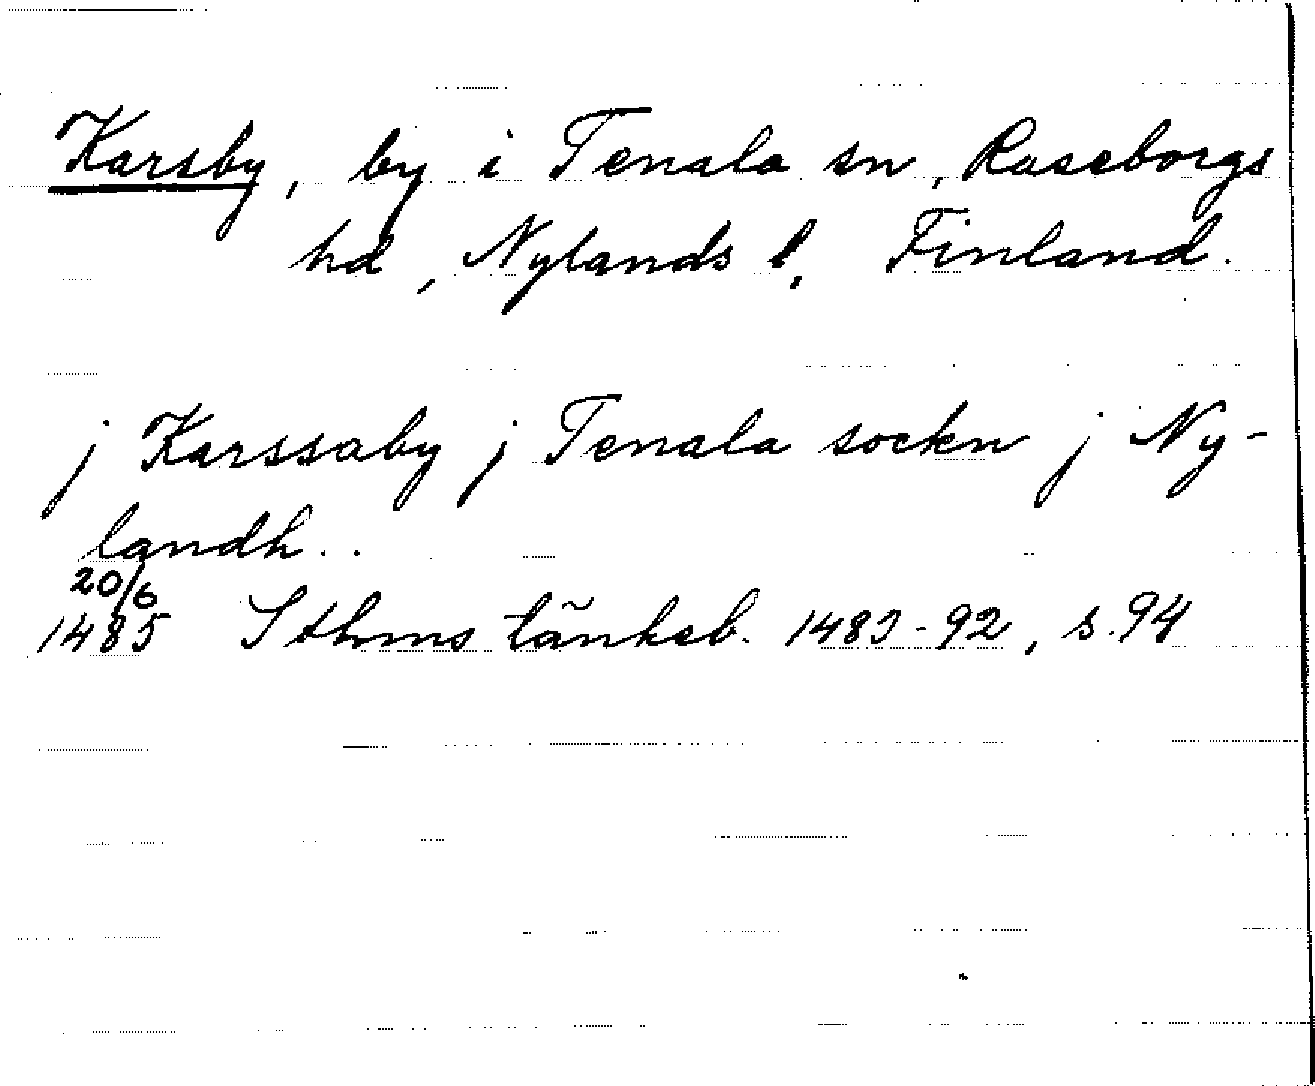 Karsby, by i Tenala sn, Raseborgs
hd, Nylands l, Finland.
j Karssaby j Tenala sockn j Ny-
landh..
20/6
1485 Sthms tänkeb. 1483-92, s. 94